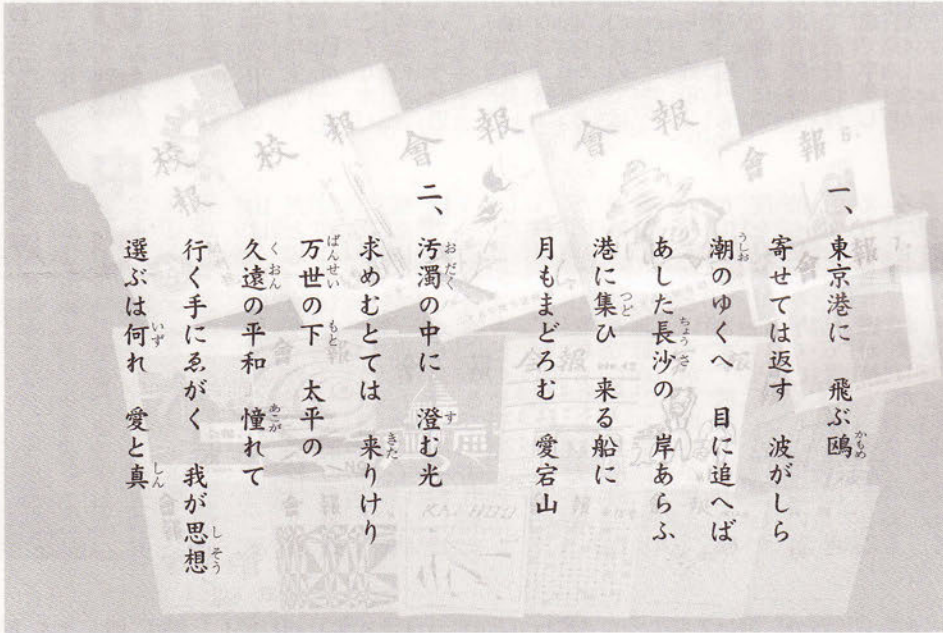 一、東京港に　飛ぶ鷗(かもめ)
寄せては返す　波がしら
潮(うしお)のゆくへ　目に追へば
あした長沙(ちょうさ)の　岸あらふ
港に集(つど)ひ　来る船に
月もまどろむ　愛宕山
二、汚濁(おだく)の中に　澄(す)む光
求めむとては　来(きた)りけり
万世(ばんせい)の下(もと)　太平の
久遠(くおん)の平和　憧(あこが)れて
行く手にゑがく　我が思想(しそう)
選ぶは何(いず)れ　愛と真(しん)
校報
校報
會報
會報
會報 6.
會報 7.
會報
会報
KAIHOO